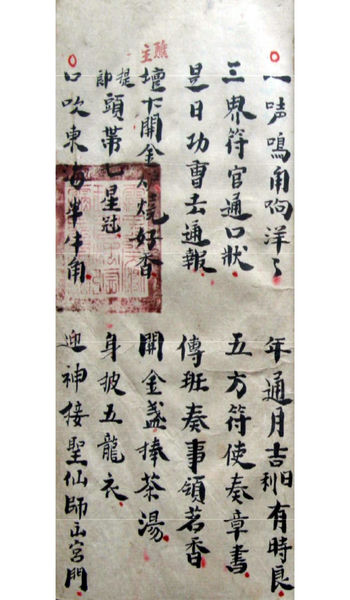 一声鳴角响洋々 年通月吉日利有時良
三界符官通口狀 五方符使奏章書
是日功曹去通報 傳班奏事領茗香
醮主
壇下開金 燒好香 開金盞捧茶湯
提即頭帶七星冠 身披五龍衣
口吹東海半牛角 迎神接聖仙師出宮門